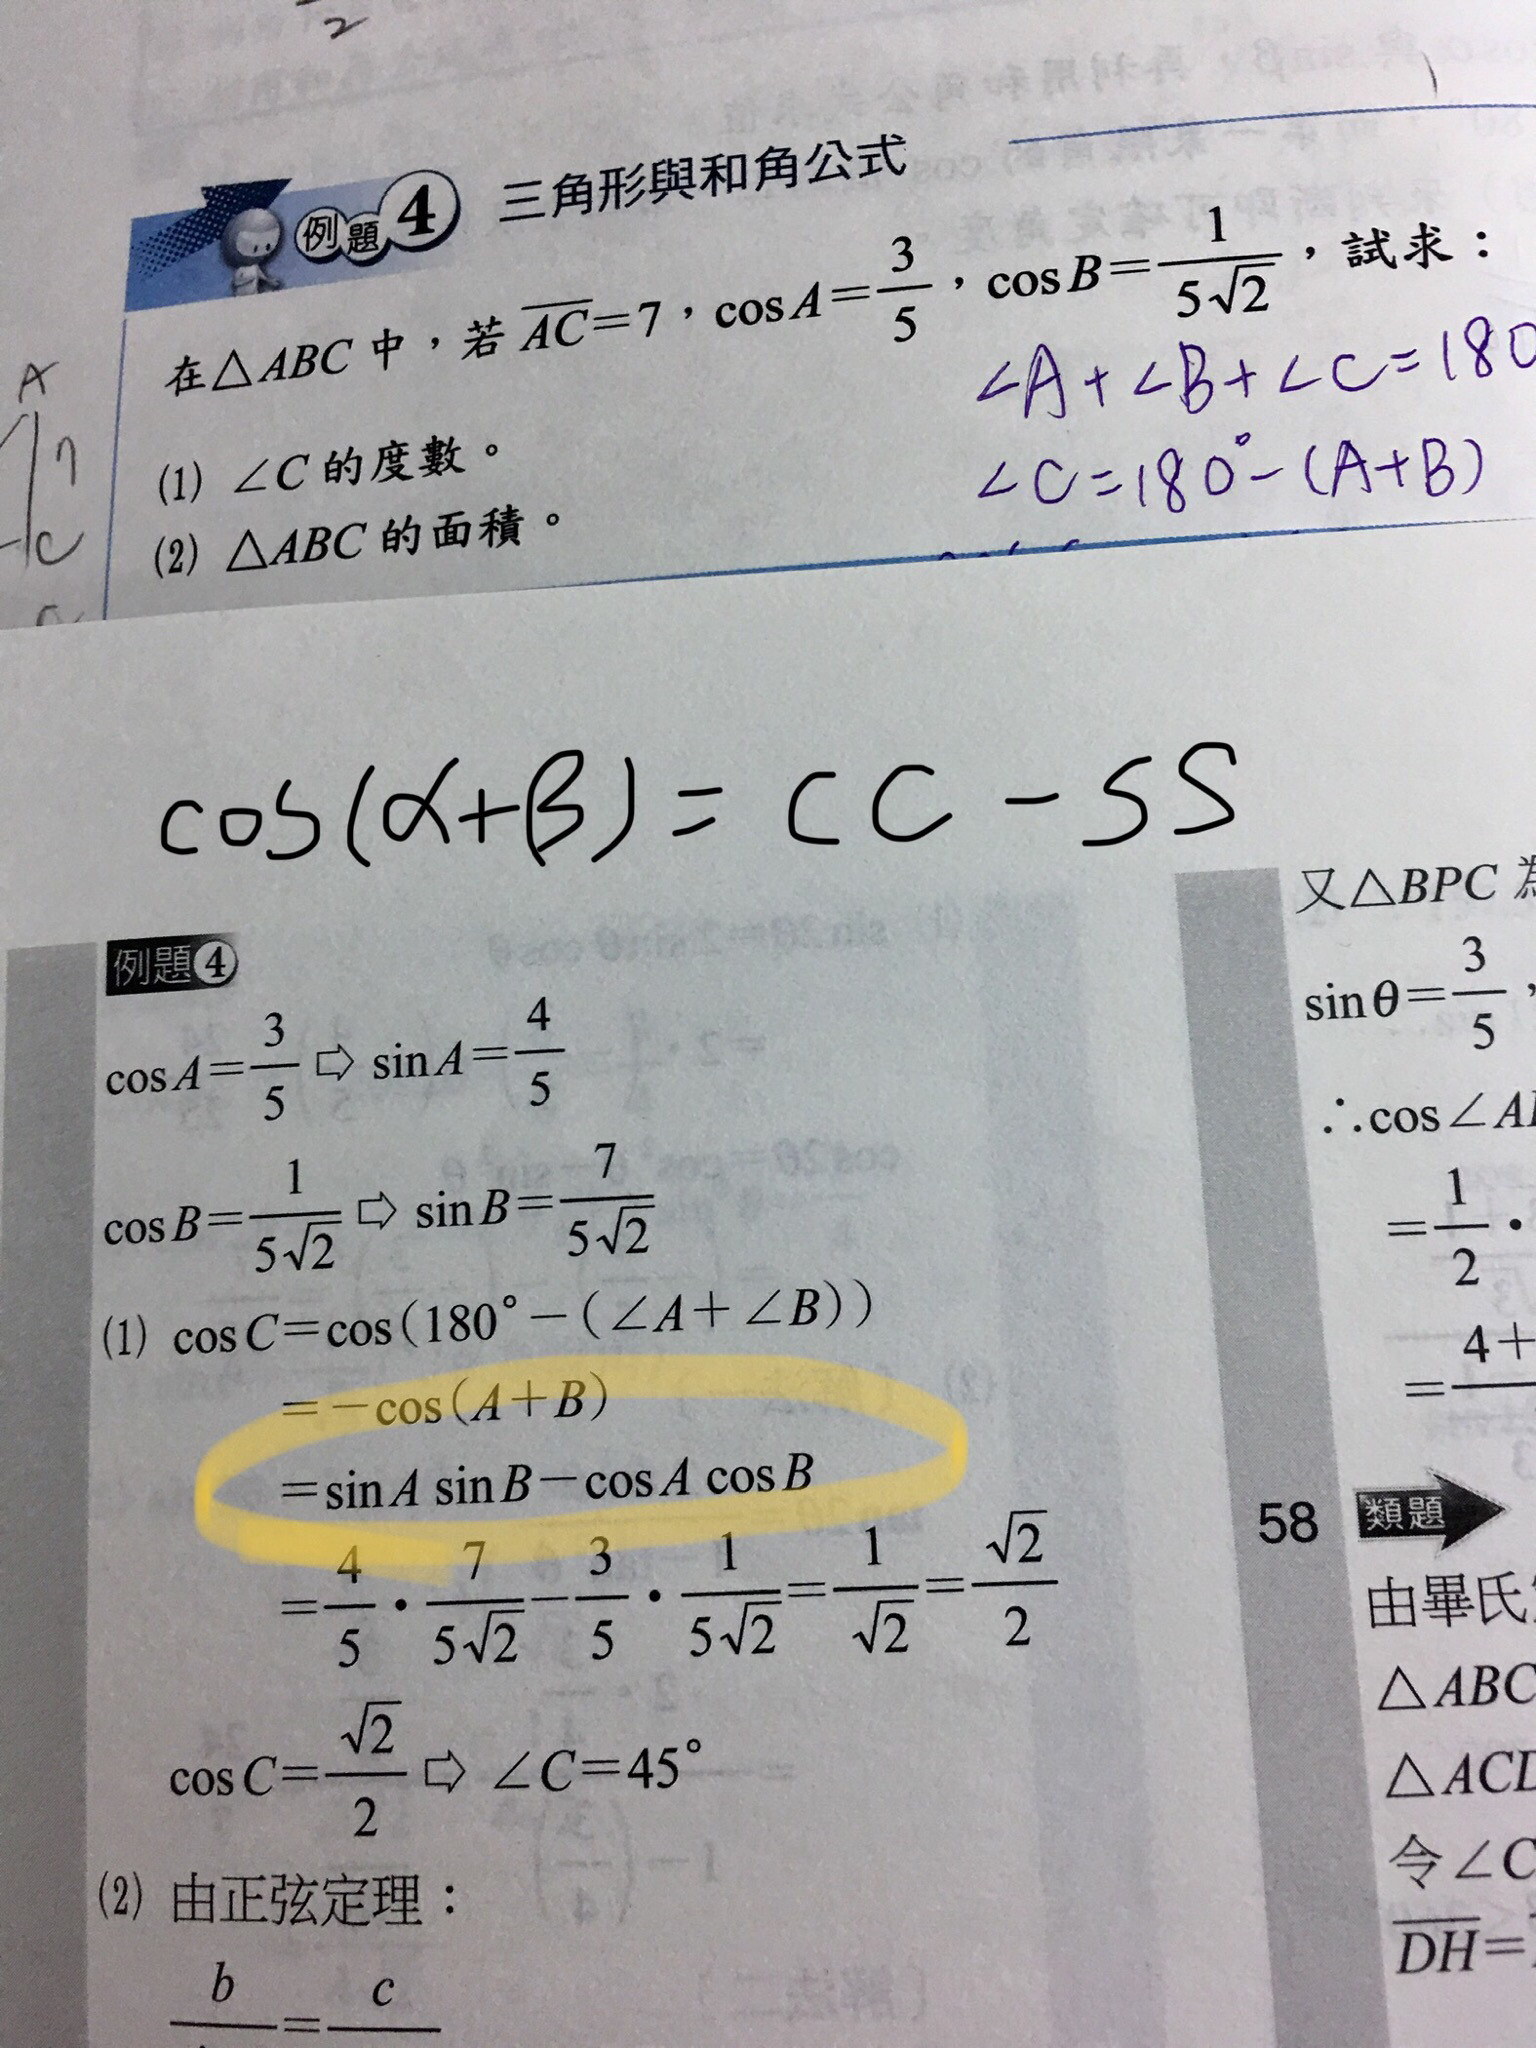 2
例題4 三角形與和角公式
在△ABC中，若AC=7，cosA=3/5，cosB=1/5√2，試求：
(1) ∠C的度數。
(2) △ABC的面積。
∠A+∠B+∠C=180
∠C=180°-(A+B)
A
7
C
cos(α+β)=CC-SS
例題4
cosA=3/5⇨sinA=4/5
cosB=1/5√2⇨sinB=7/5√2
(1) cosC=cos(180°-(∠A+∠B))
=-cos(A+B)
=sinA sinB-cosA cosB
=4/5·7/5√2-3/5·1/5√2=1/√2=√2/2
cosC=√2/2⇨∠C=45°
(2) 由正弦定理：
b = c
又△BPC
sinθ=3/5，
∴cos∠A
=1/2·
=4+
58 類題
由畢氏
△ABC
△AC
令∠C
DH=